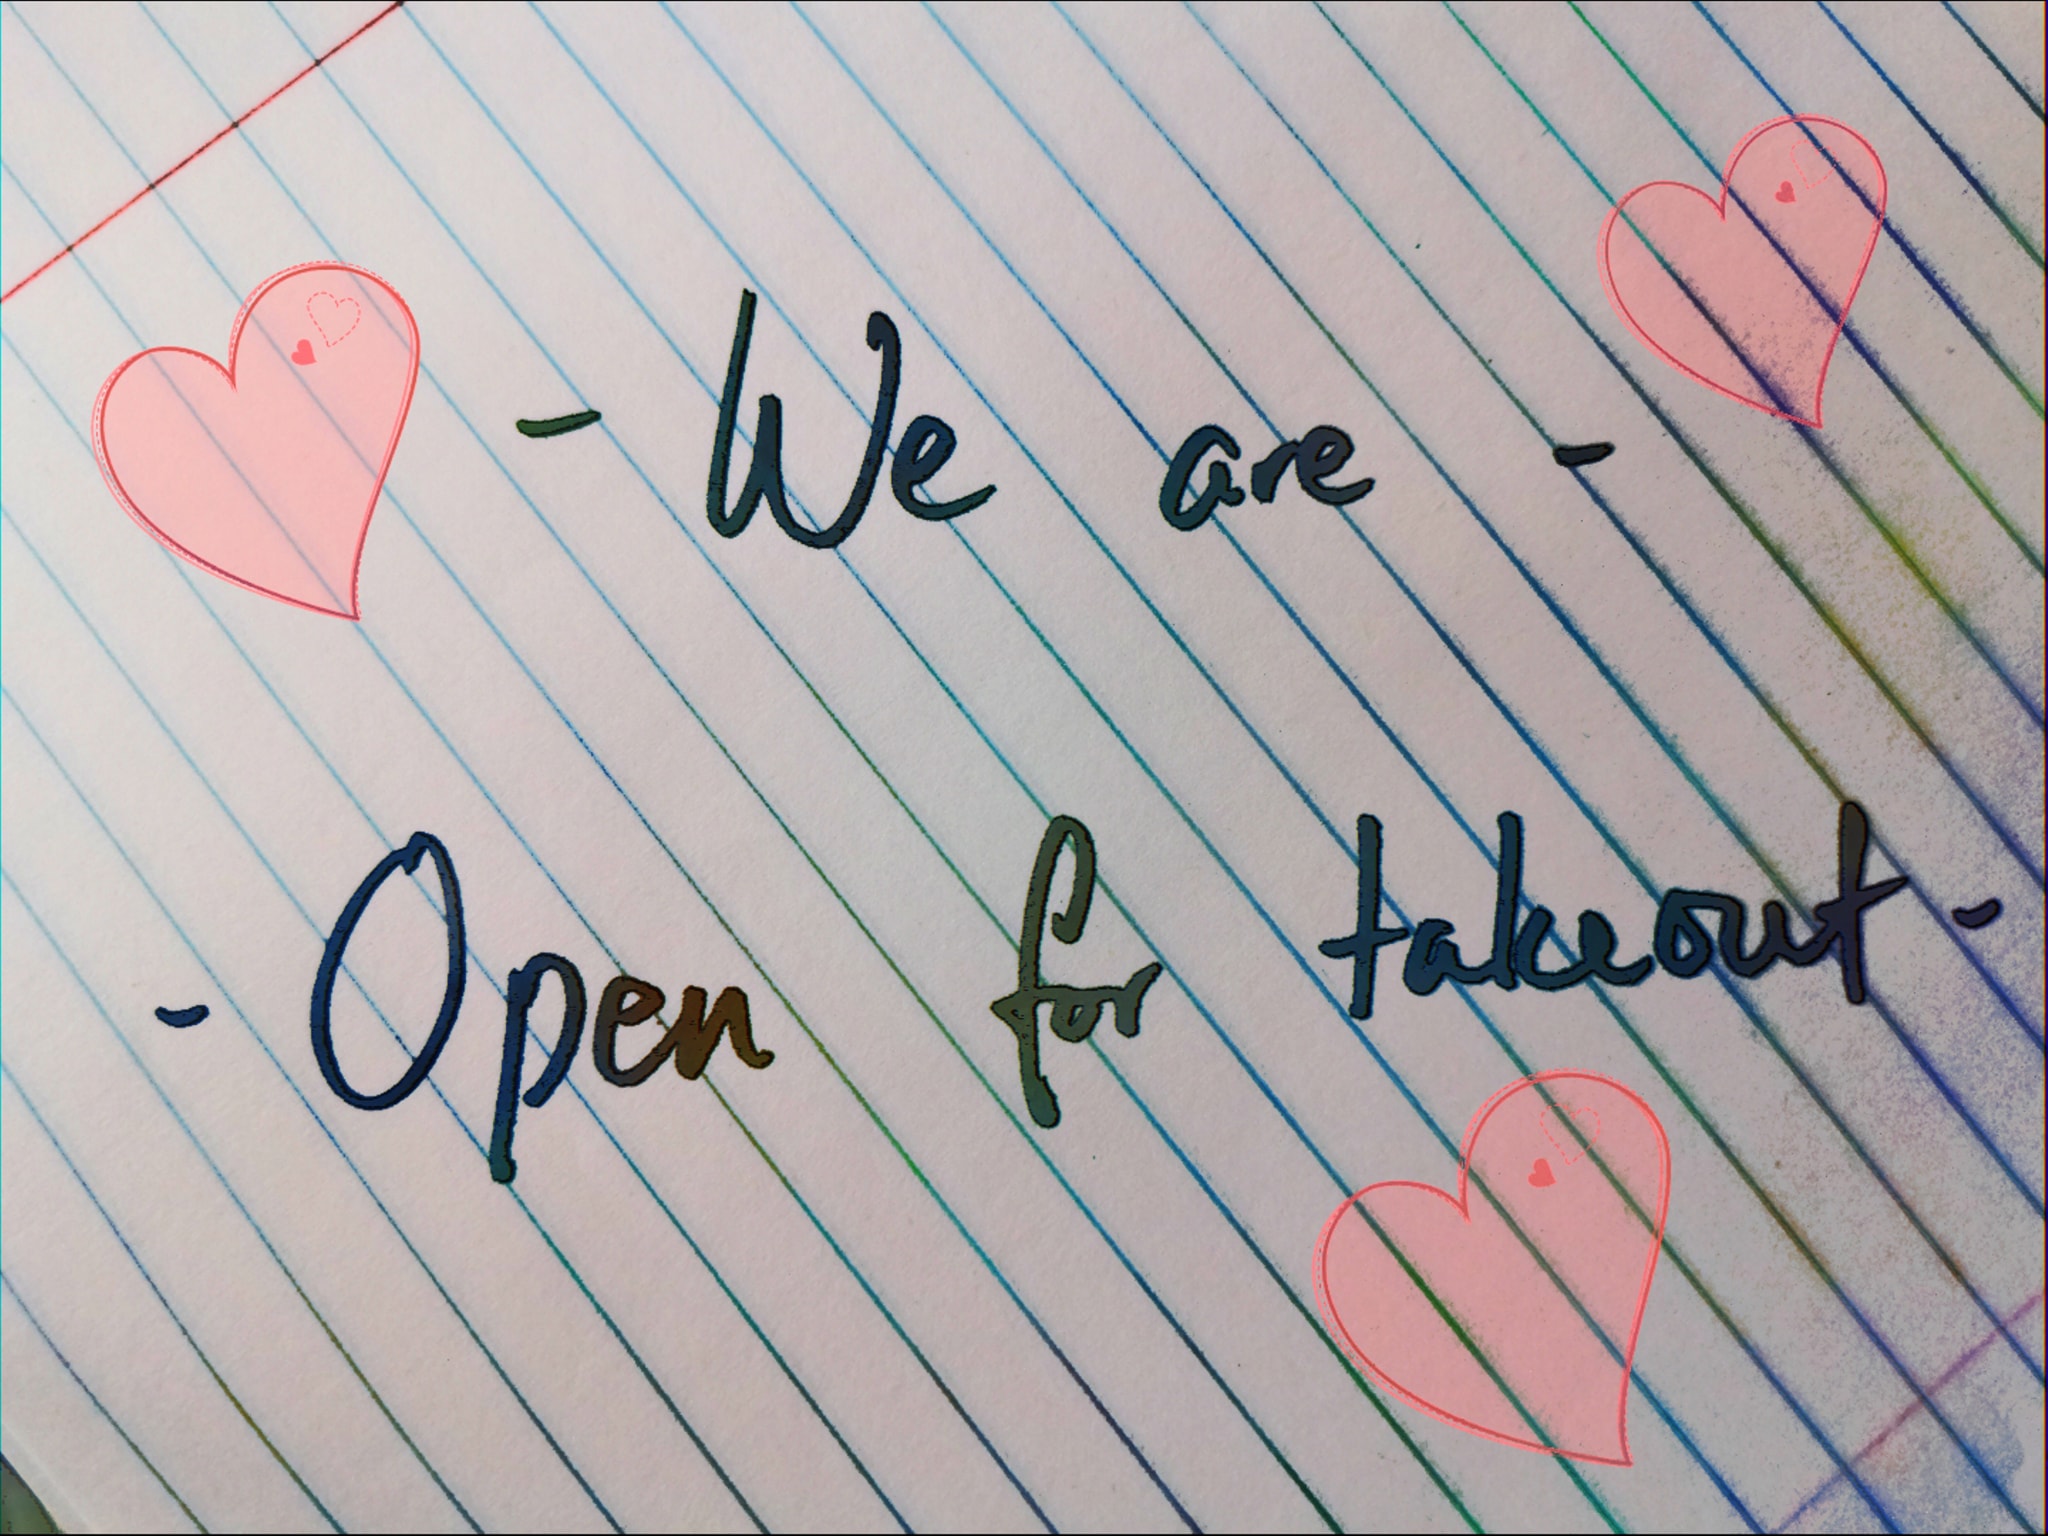 - We are -
- Open for takeout -